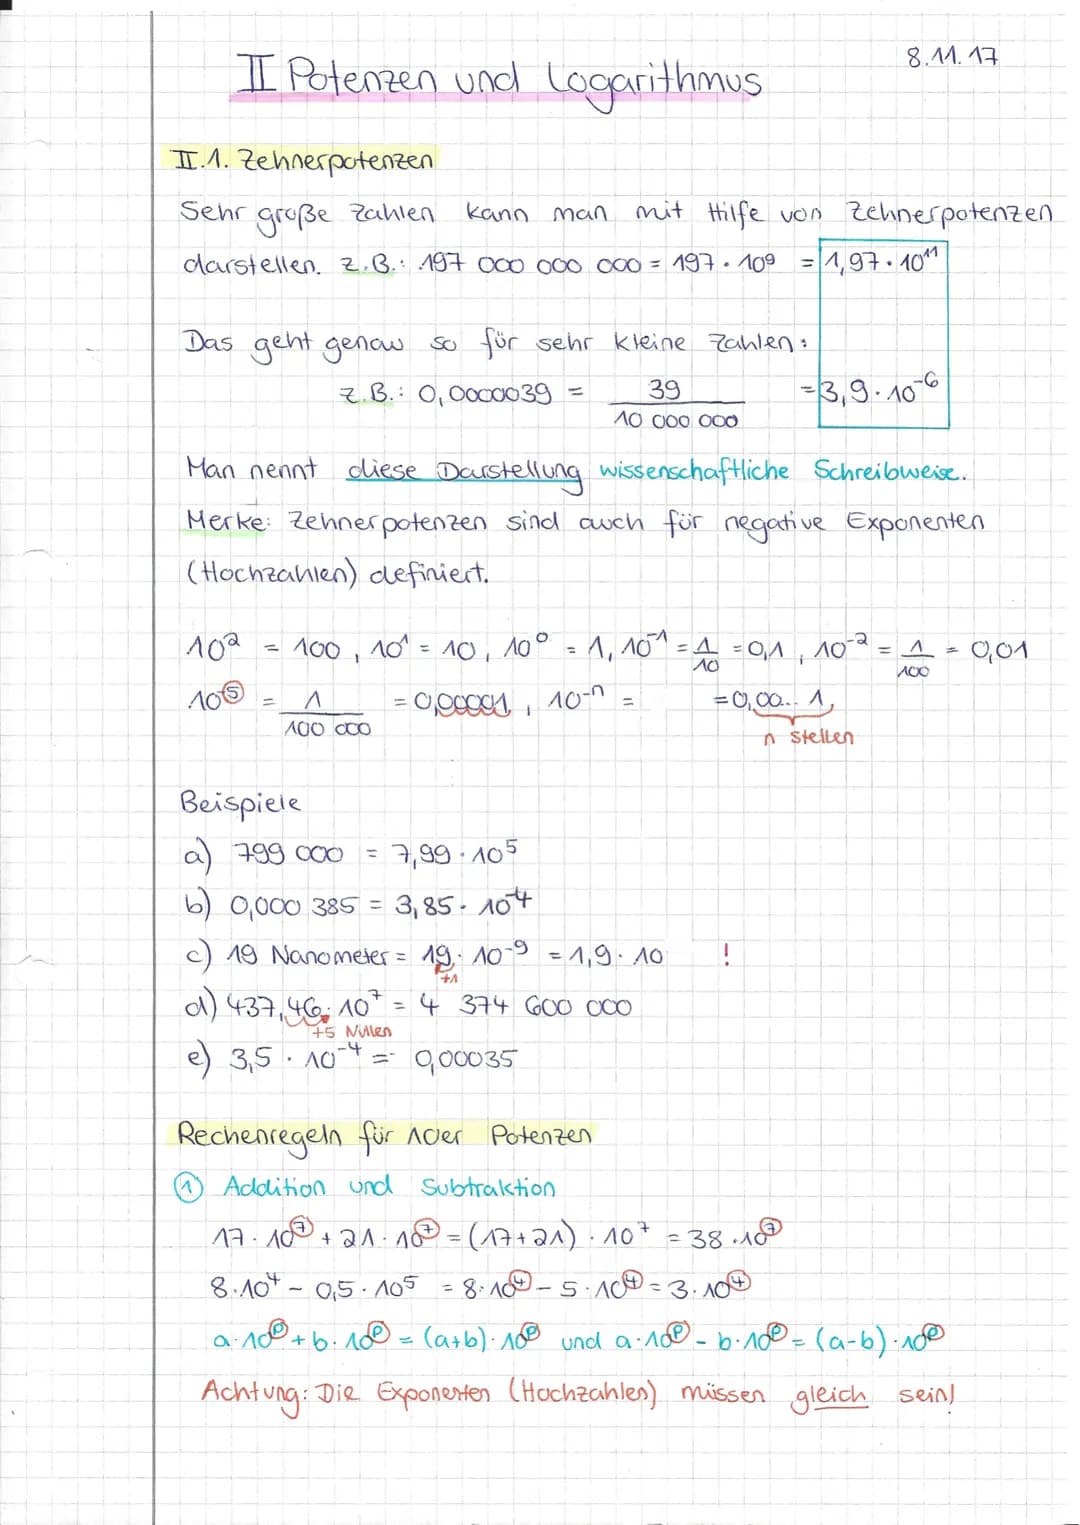 8.11.17
II Potenzen und Logarithmus
II.1. Zehnerpotenzen
Sehr große Zahlen kann man mit Hilfe von Zehnerpotenzen
darstellen. z.B.: 197 000 000 000 = 197 · 10⁹ = 1,97 · 10¹¹
Das geht genau so für sehr kleine Zahlen:
z.B.: 0,0000039 = 39/10 000 000 = 3,9 · 10⁻⁶
Man nennt diese Darstellung wissenschaftliche Schreibweise.
Merke: Zehnerpotenzen sind auch für negative Exponenten
(Hochzahlen) definiert.
10² = 100, 10¹ = 10, 10⁰ = 1, 10⁻¹ = 1/10 = 0,1, 10⁻² = 1/100 = 0,01
10⁻⁵ = 1/100 000 = 0,00001, 10⁻ⁿ = = 0,00...1,
n stellen
Beispiele
a) 799 000 = 7,99 · 10⁵
b) 0,000 385 = 3,85 · 10⁻⁴
c) 19 Nanometer = 19 · 10⁻⁹ = 1,9 · 10 !
+1
d) 437,46 · 10⁷ = 4 374 600 000
+5 Nullen
e) 3,5 · 10⁻⁴ = 0,00035
Rechenregeln für 10er Potenzen
① Addition und Subtraktion
17 · 10⁷ + 21 · 10⁷ = (17+21) · 10⁷ = 38 · 10⁷
8 · 10⁴ - 0,5 · 10⁵ = 8 · 10⁴ - 5 · 10⁴ = 3 · 10⁴
a · 10ᵖ + b · 10ᵖ = (a+b) · 10ᵖ und a · 10ᵖ - b · 10ᵖ = (a-b) · 10ᵖ
Achtung: Die Exponenten (Hochzahlen) müssen gleich sein!